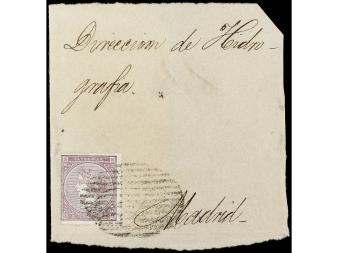 Direccion de Hidro-
grafia.
Madrid-